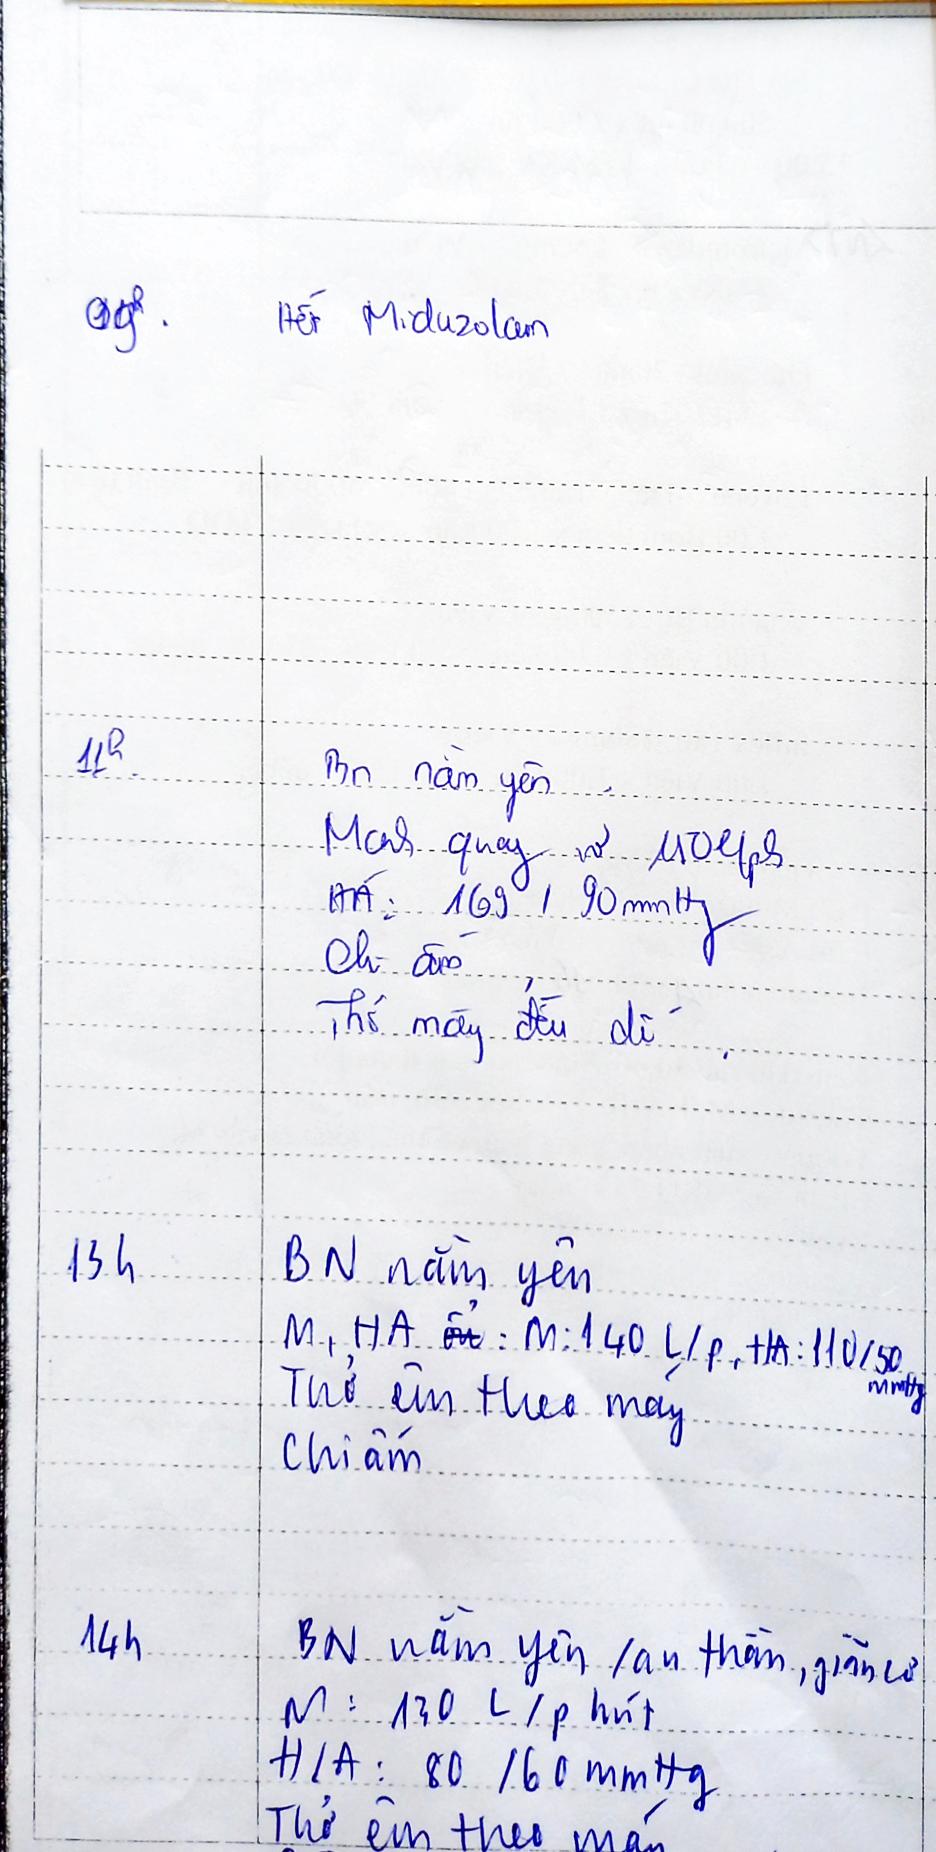 09h. Hết Miduzolam
11h. Bn nằm yên.
Mạch quay rõ 110 l/ph
HA: 169 / 90 mmHg
Chi ấm
Thở máy đều dễ.
13h BN nằm yên
M, HA : M: 140 L/p, HA: 110/50
mmHg
Thở êm theo máy
Chi ấm
14h BN nằm yên /an thần, giãn cơ
M: 130 L/phút
H/A: 80 /60 mmHg
Thở êm theo máy